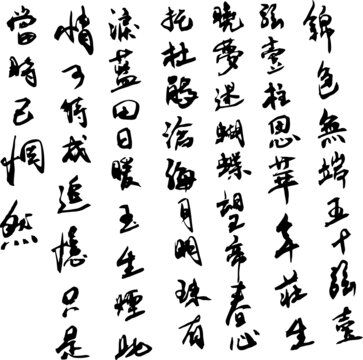 錦色無端五十弦壹
弦壹柱思華年莊生
曉夢迷蝴蝶望帝春心
托杜鵑滄海月明珠有
淚藍田日暖玉生煙此
情可待成追憶只是
當時已惘然